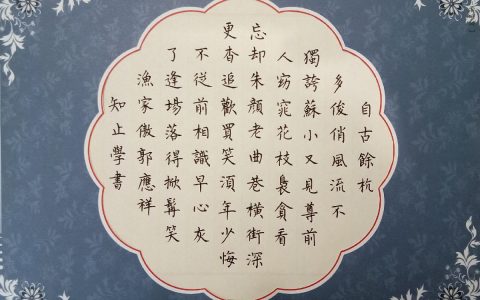 自古餘杭
多俊俏風流不
獨誇蘇小又見尊前
人窈窕花枝裊貪看
忘却朱顏老曲巷橫街深
更杳追歡買笑湏年少悔
不從前相識早心灰
了逢場落得掀髯笑
漁家傲郭應祥
知止學書